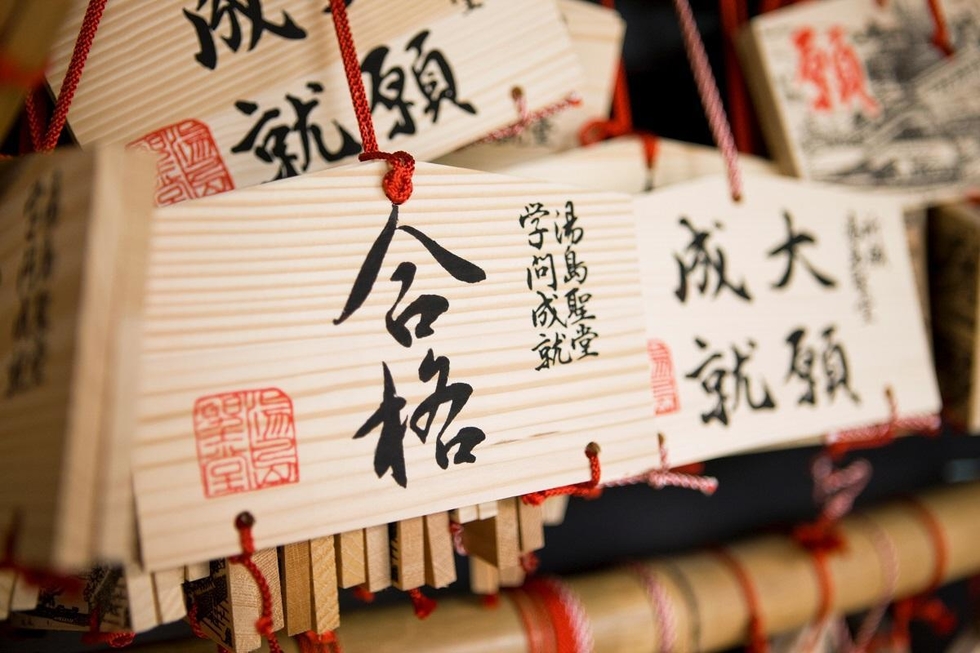 願
成就
湯島聖堂
学問成就
合格
湯島
聖堂
大願
成就
願